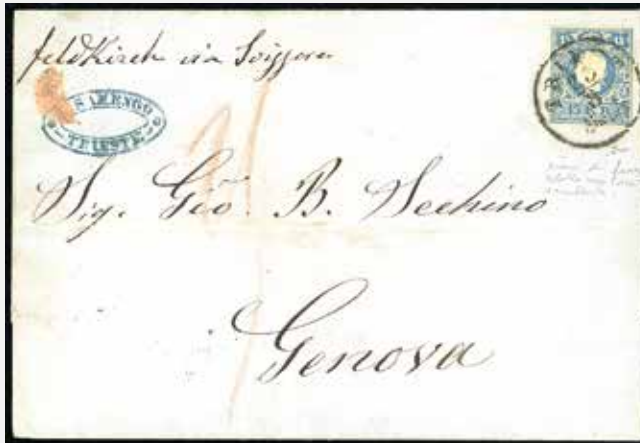 feldkirch via Svizzera
SAMENGO
TRIESTE
15 15
15 KR
Sig. Gio. B. Secchino
Genova